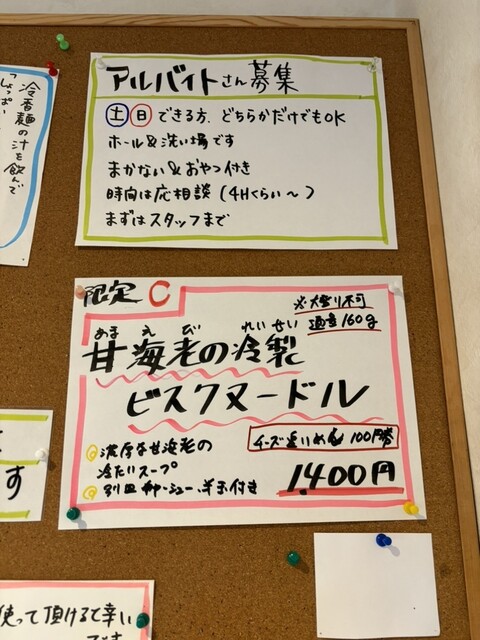 アルバイトさん募集
土 日 できる方、どちらかだけでもOK
ホール&洗い場です
まかない&おやつ付き
時間は応相談(4Hくらい〜)
まずはスタッフまで
冷香麺の汁を飲んで
「しょっぱい
限定 C
※大盛り不可
通常160g
あま えび れいせい
甘海老の冷製
ビスクヌードル
濃厚な甘海老の
冷たいスープ
別皿 チャーシュー、半玉付き
チーズ追いめし 100円券
1,400円
す
使って頂けると幸い
です